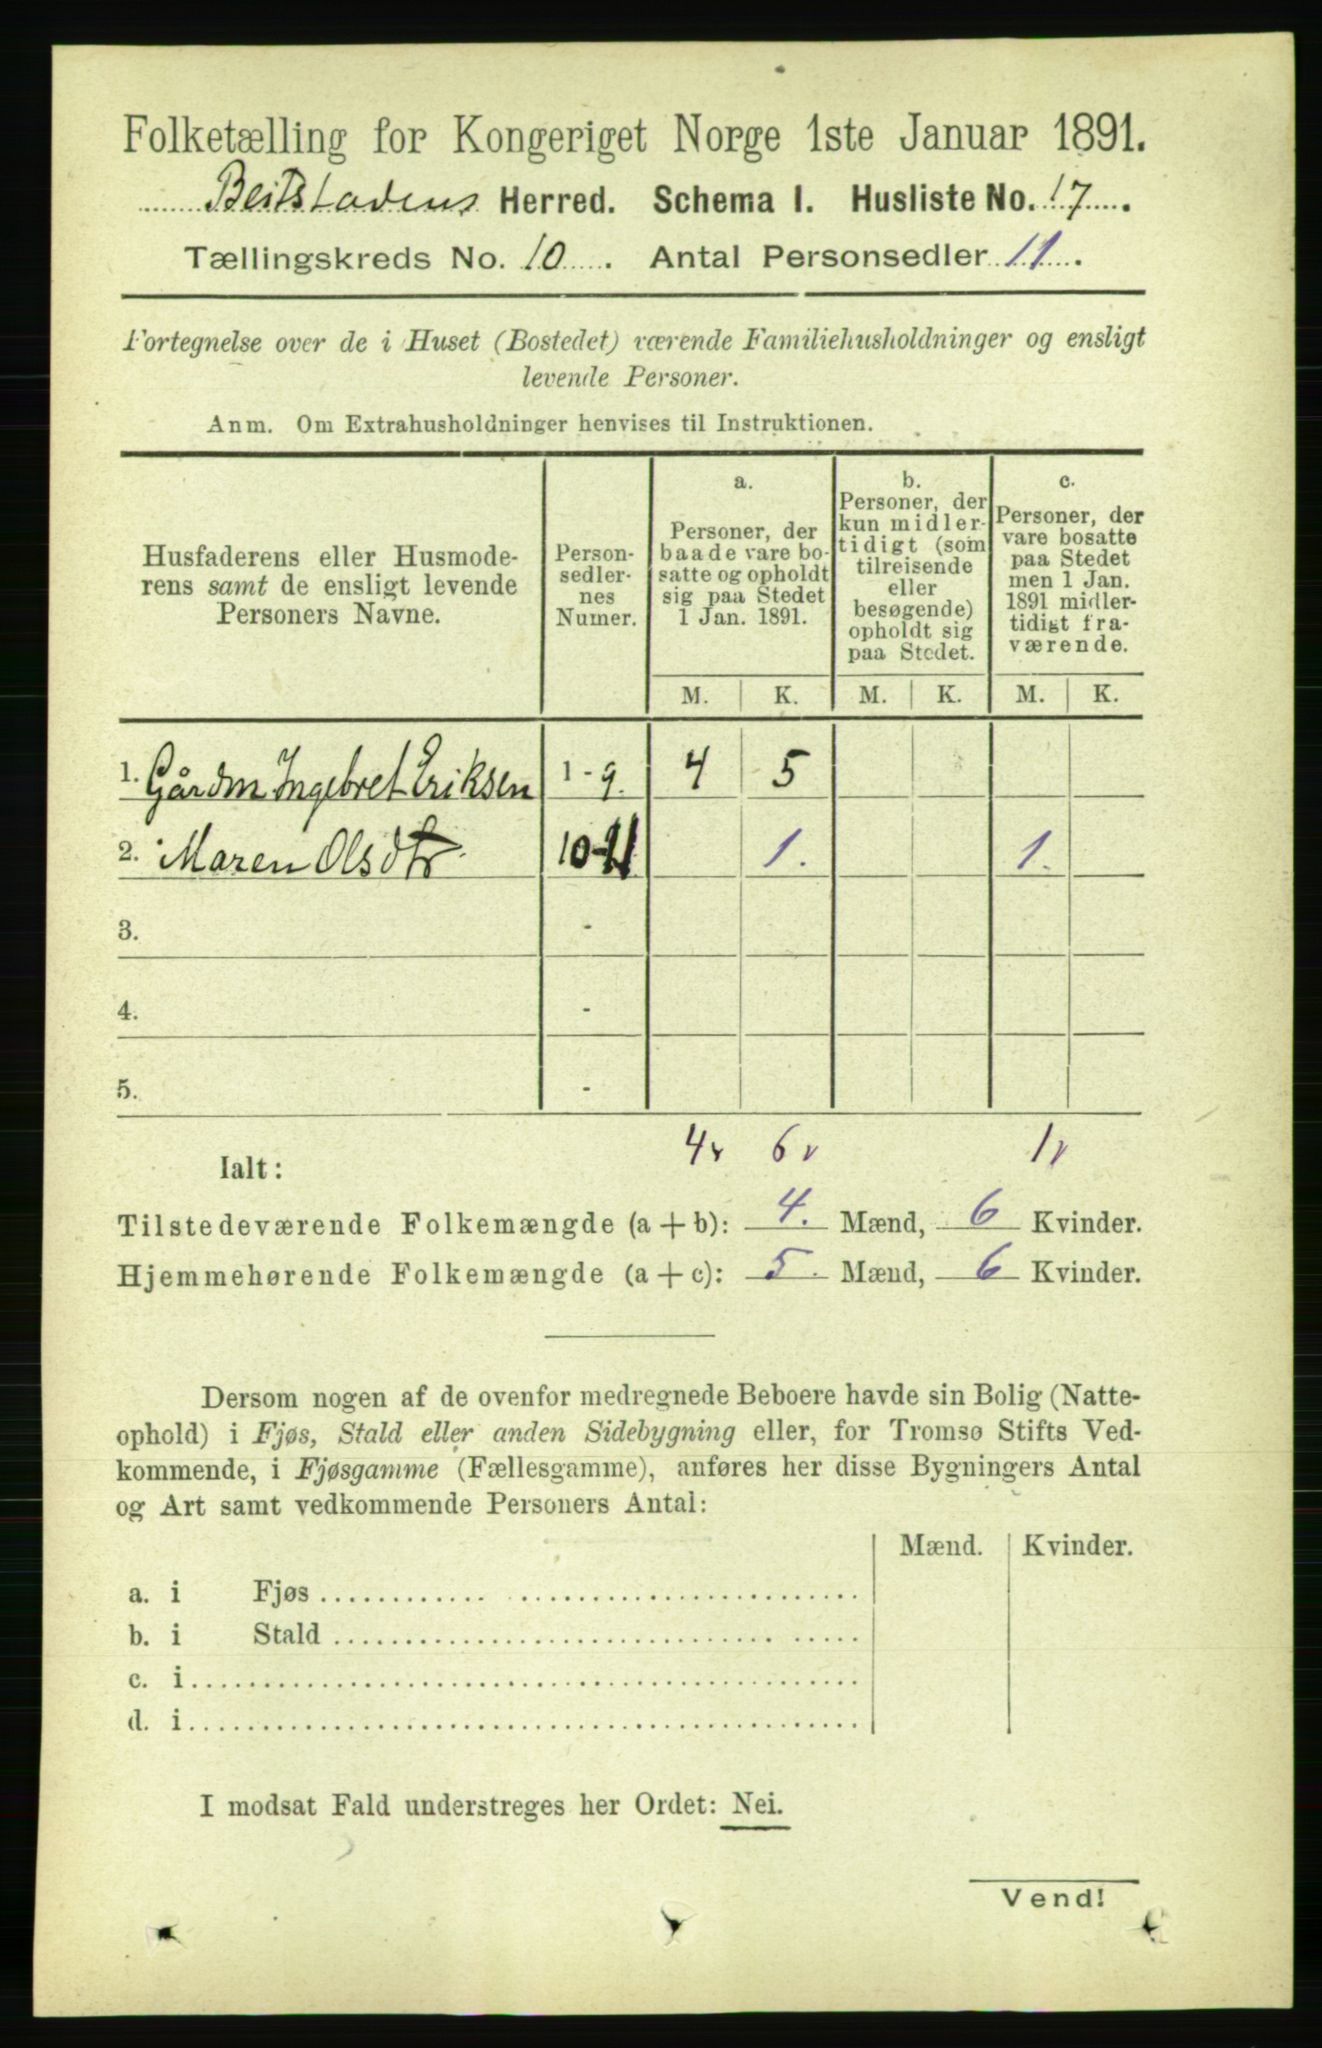 Folketælling for Kongeriget Norge 1ste Januar 1891.
Beitstadens Herred. Schema I. Husliste No. 17.
Tællingskreds No. 10. Antal Personsedler 11.
Fortegnelse over de i Huset (Bostedet) værende Familiehusholdninger og ensligt
levende Personer.
Anm. Om Extrahusholdninger henvises til Instruktionen.
Husfaderens eller Husmode-
rens samt de ensligt levende
Personers Navne.
Person-
sedler-
nes
Numer.
a.
Personer, der
baade vare bo-
satte og opholdt
sig paa Stedet
1 Jan. 1891.
b.
Personer, der
kun midler-
tidigt (som
tilreisende
eller
besøgende)
opholdt sig
paa Stedet.
c.
Personer, der
vare bosatte
paa Stedet
men 1 Jan.
1891 midler-
tidigt fra-
værende.
M. K. M. K. M. K.
1. Gårdm Ingebret Eriksen 1 - 9. 4 5
2. Maren Olsdtr 10-11 1. 1.
3. -
4. -
5. -
Ialt: 4v 6v 1v
Tilstedeværende Folkemængde (a + b): 4. Mænd, 6 Kvinder.
Hjemmehørende Folkemængde (a + c): 5. Mænd, 6 Kvinder.
Dersom nogen af de ovenfor medregnede Beboere havde sin Bolig (Natte-
ophold) i Fjøs, Stald eller anden Sidebygning eller, for Tromsø Stifts Ved-
kommende, i Fjøsgamme (Fællesgamme), anføres her disse Bygningers Antal
og Art samt vedkommende Personers Antal:
Mænd. Kvinder.
a. i Fjøs
b. i Stald
c. i
d. i
I modsat Fald understreges her Ordet: Nei.
Vend!